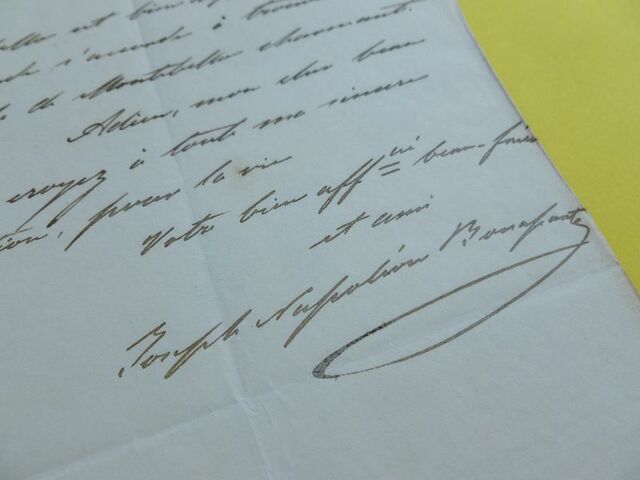 est bien
s'accorde à trouver
de Montebello charmant.
Adieu, mon cher beau
croyez à toute ma sincère
pour la vie
Votre bien affné beau-frère
et ami
Joseph Napoléon Bonaparte